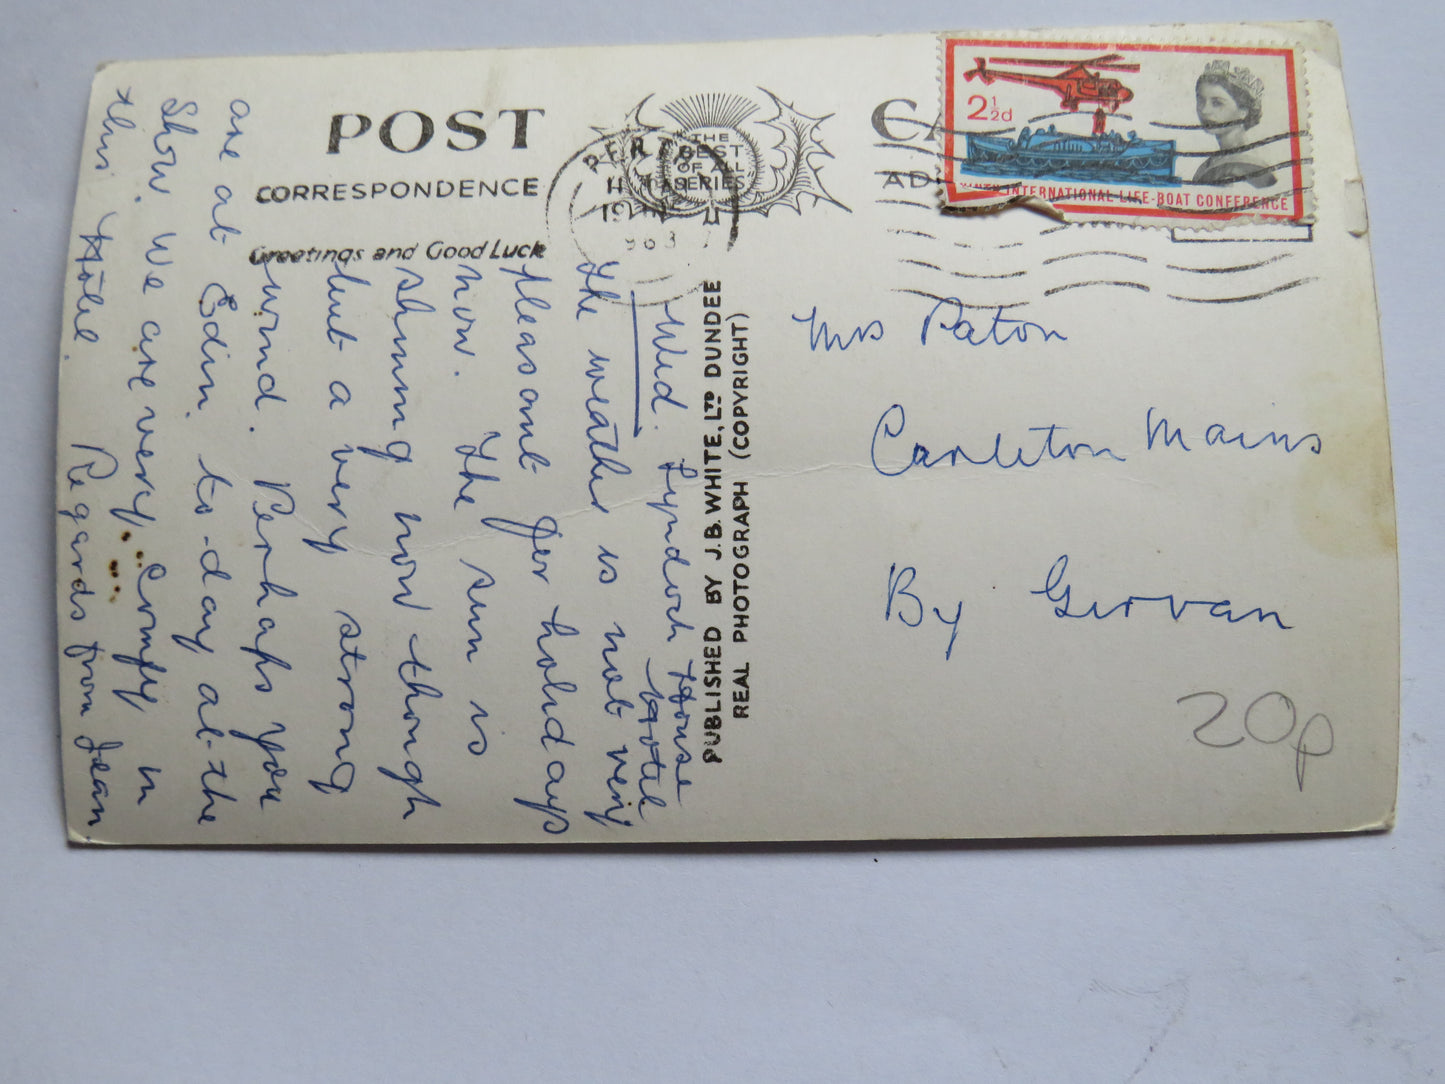 POST CARD
CORRESPONDENCE
Greetings and Good Luck
THE
BEST
OF ALL
SERIES
PERTH
1963
2½d
NINTH INTERNATIONAL LIFE-BOAT CONFERENCE
PUBLISHED BY J.B. WHITE, LTD DUNDEE
REAL PHOTOGRAPH (COPYRIGHT)
Wed. Lyndoch House
Hotel
The weather is not very
pleasant for holidays
now. The sun is
shining now though
but a very strong
wind. Perhaps you
are at Edin. to-day at the
Show. We are very comfy in
this Hotel. Regards from Jean
Mrs Paton
Carleton Mains
By Girvan
20p